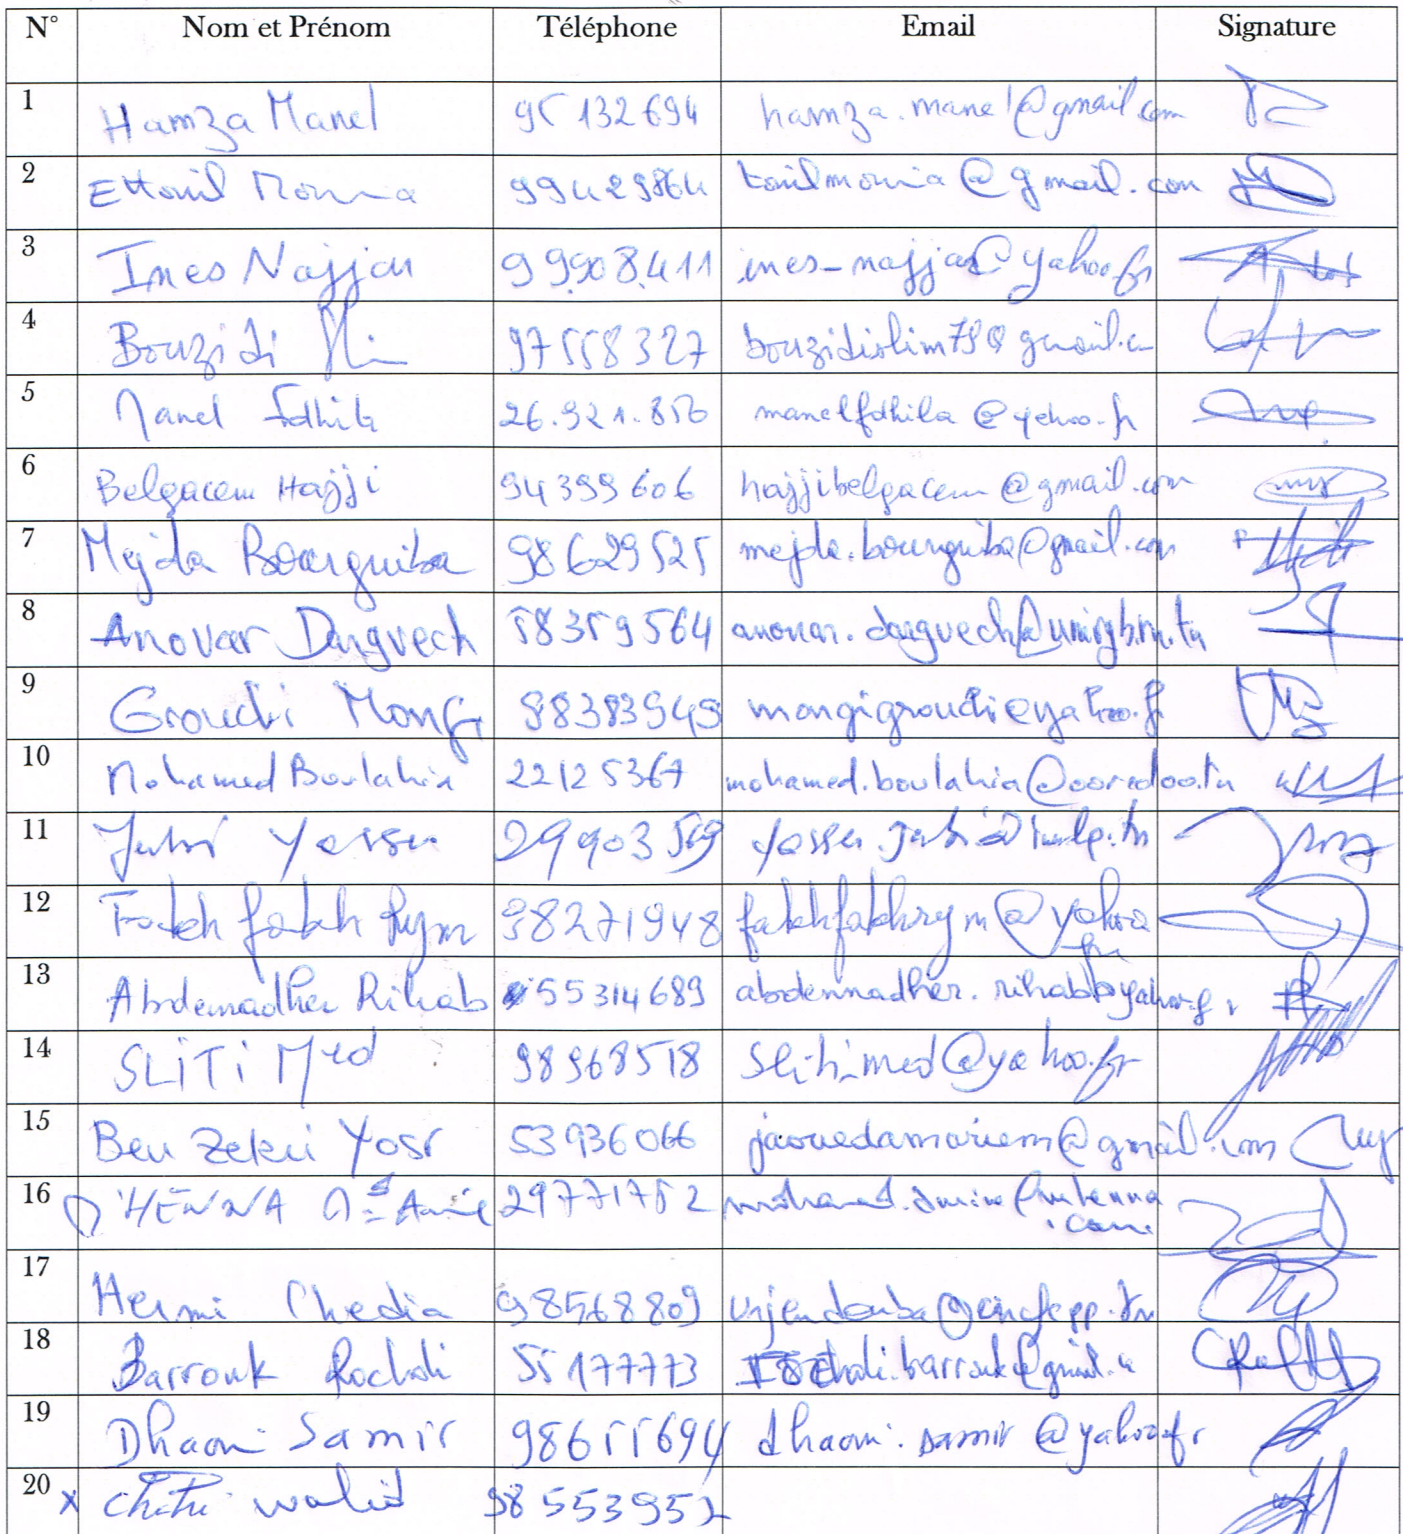 N° Nom et Prénom Téléphone Email Signature
1 Hamza Manel 95 132 694 hamza.manel@gmail.com
2 Ettouil Monia 99429864 touilmonia@gmail.com
3 Ines Najjar 99908411 ines_najjar@yahoo.fr
4 Bouzidi Slim 97558327 bouzidislim79@gmail.c
5 Manel Fdhila 26.921.850 manelfdhila@yahoo.fr
6 Belgacem Hajji 94399606 hajjibelgacem@gmail.com
7 Mejda Bourguiba 98629525 mejda.bourguiba@gmail.com
8 Anouar Dargvech 58359564
9 Groudi Mongi 98383949 mongigroudi@yahoo.f
10 Mohamed Boulahia 22125367 mohamed.boulahia@ooredoo.tn
11 Yosser 29903569
12 Fakhfakh Rym 98271948 fakhfakhrym@yahoo
.fr
13 Abdennadher Rihab 55314689 abdennadher.rihab@yahoo.fr
14 SLiTi Med 98968518 Sliti_med@yahoo.fr
15 Ben Zekri Yosr 53936066 jaouedamariem@gmail.com
16 29771752
.com
17 Hermi Chedia 98568809
18 Barrouk Rochdi 55177773
19 Dhaoui Samir 98655694 dhaoui.samir@yahoo.fr
20 x walid 98553952